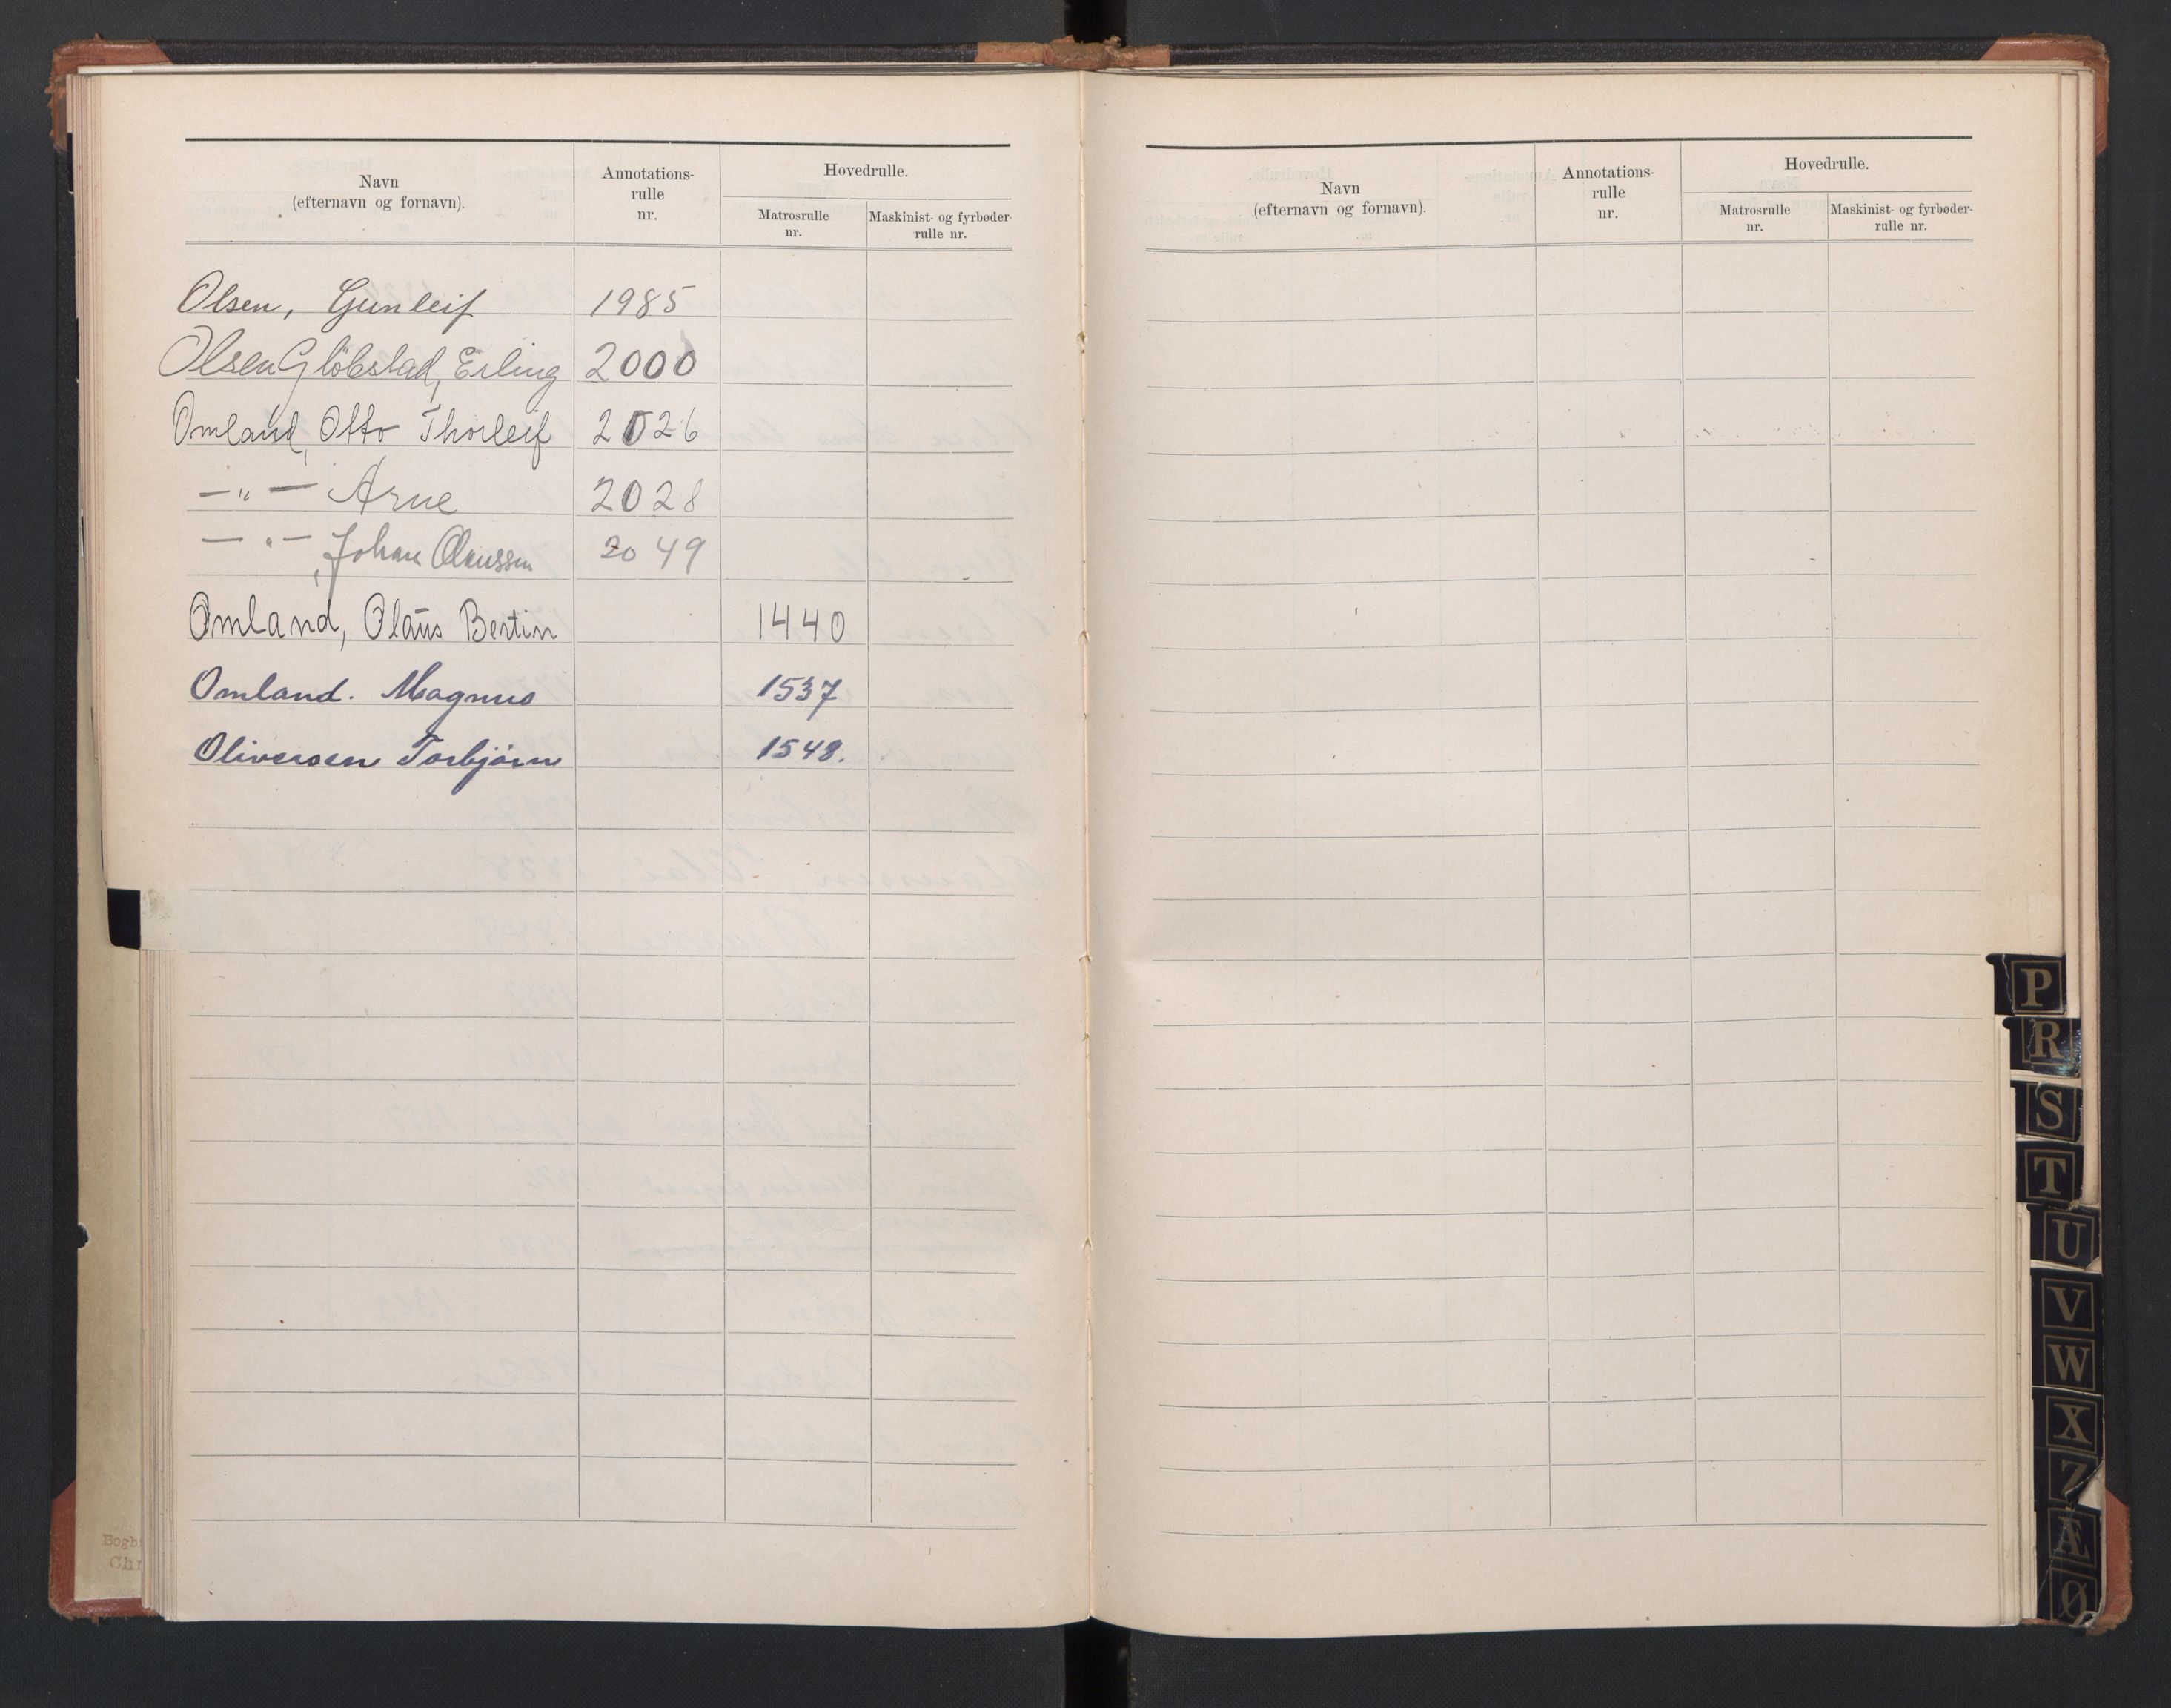 Navn
(efternavn og fornavn).
Annotations-
rulle
nr.
Hovedrulle.
Matrosrulle
nr.
Maskinist- og fyrbøder-
rulle nr.
Olsen, Gunleif 1985
Olsen Glöbstad, Erling 2000
Omland, Otto Thorleif 2026
—"— Arne 2028
—"—, Johan Olaussen 2049
Omland, Olaus Bertin 1440
Omland. Magnus 1537
Oliversen Torbjørn 1548.
Navn
(efternavn og fornavn).
Annotations-
rulle
nr.
Hovedrulle.
Matrosrulle
nr.
Maskinist- og fyrbøder-
rulle nr.
P
R
S
T
U
V
W
X
Z
Æ
Ø